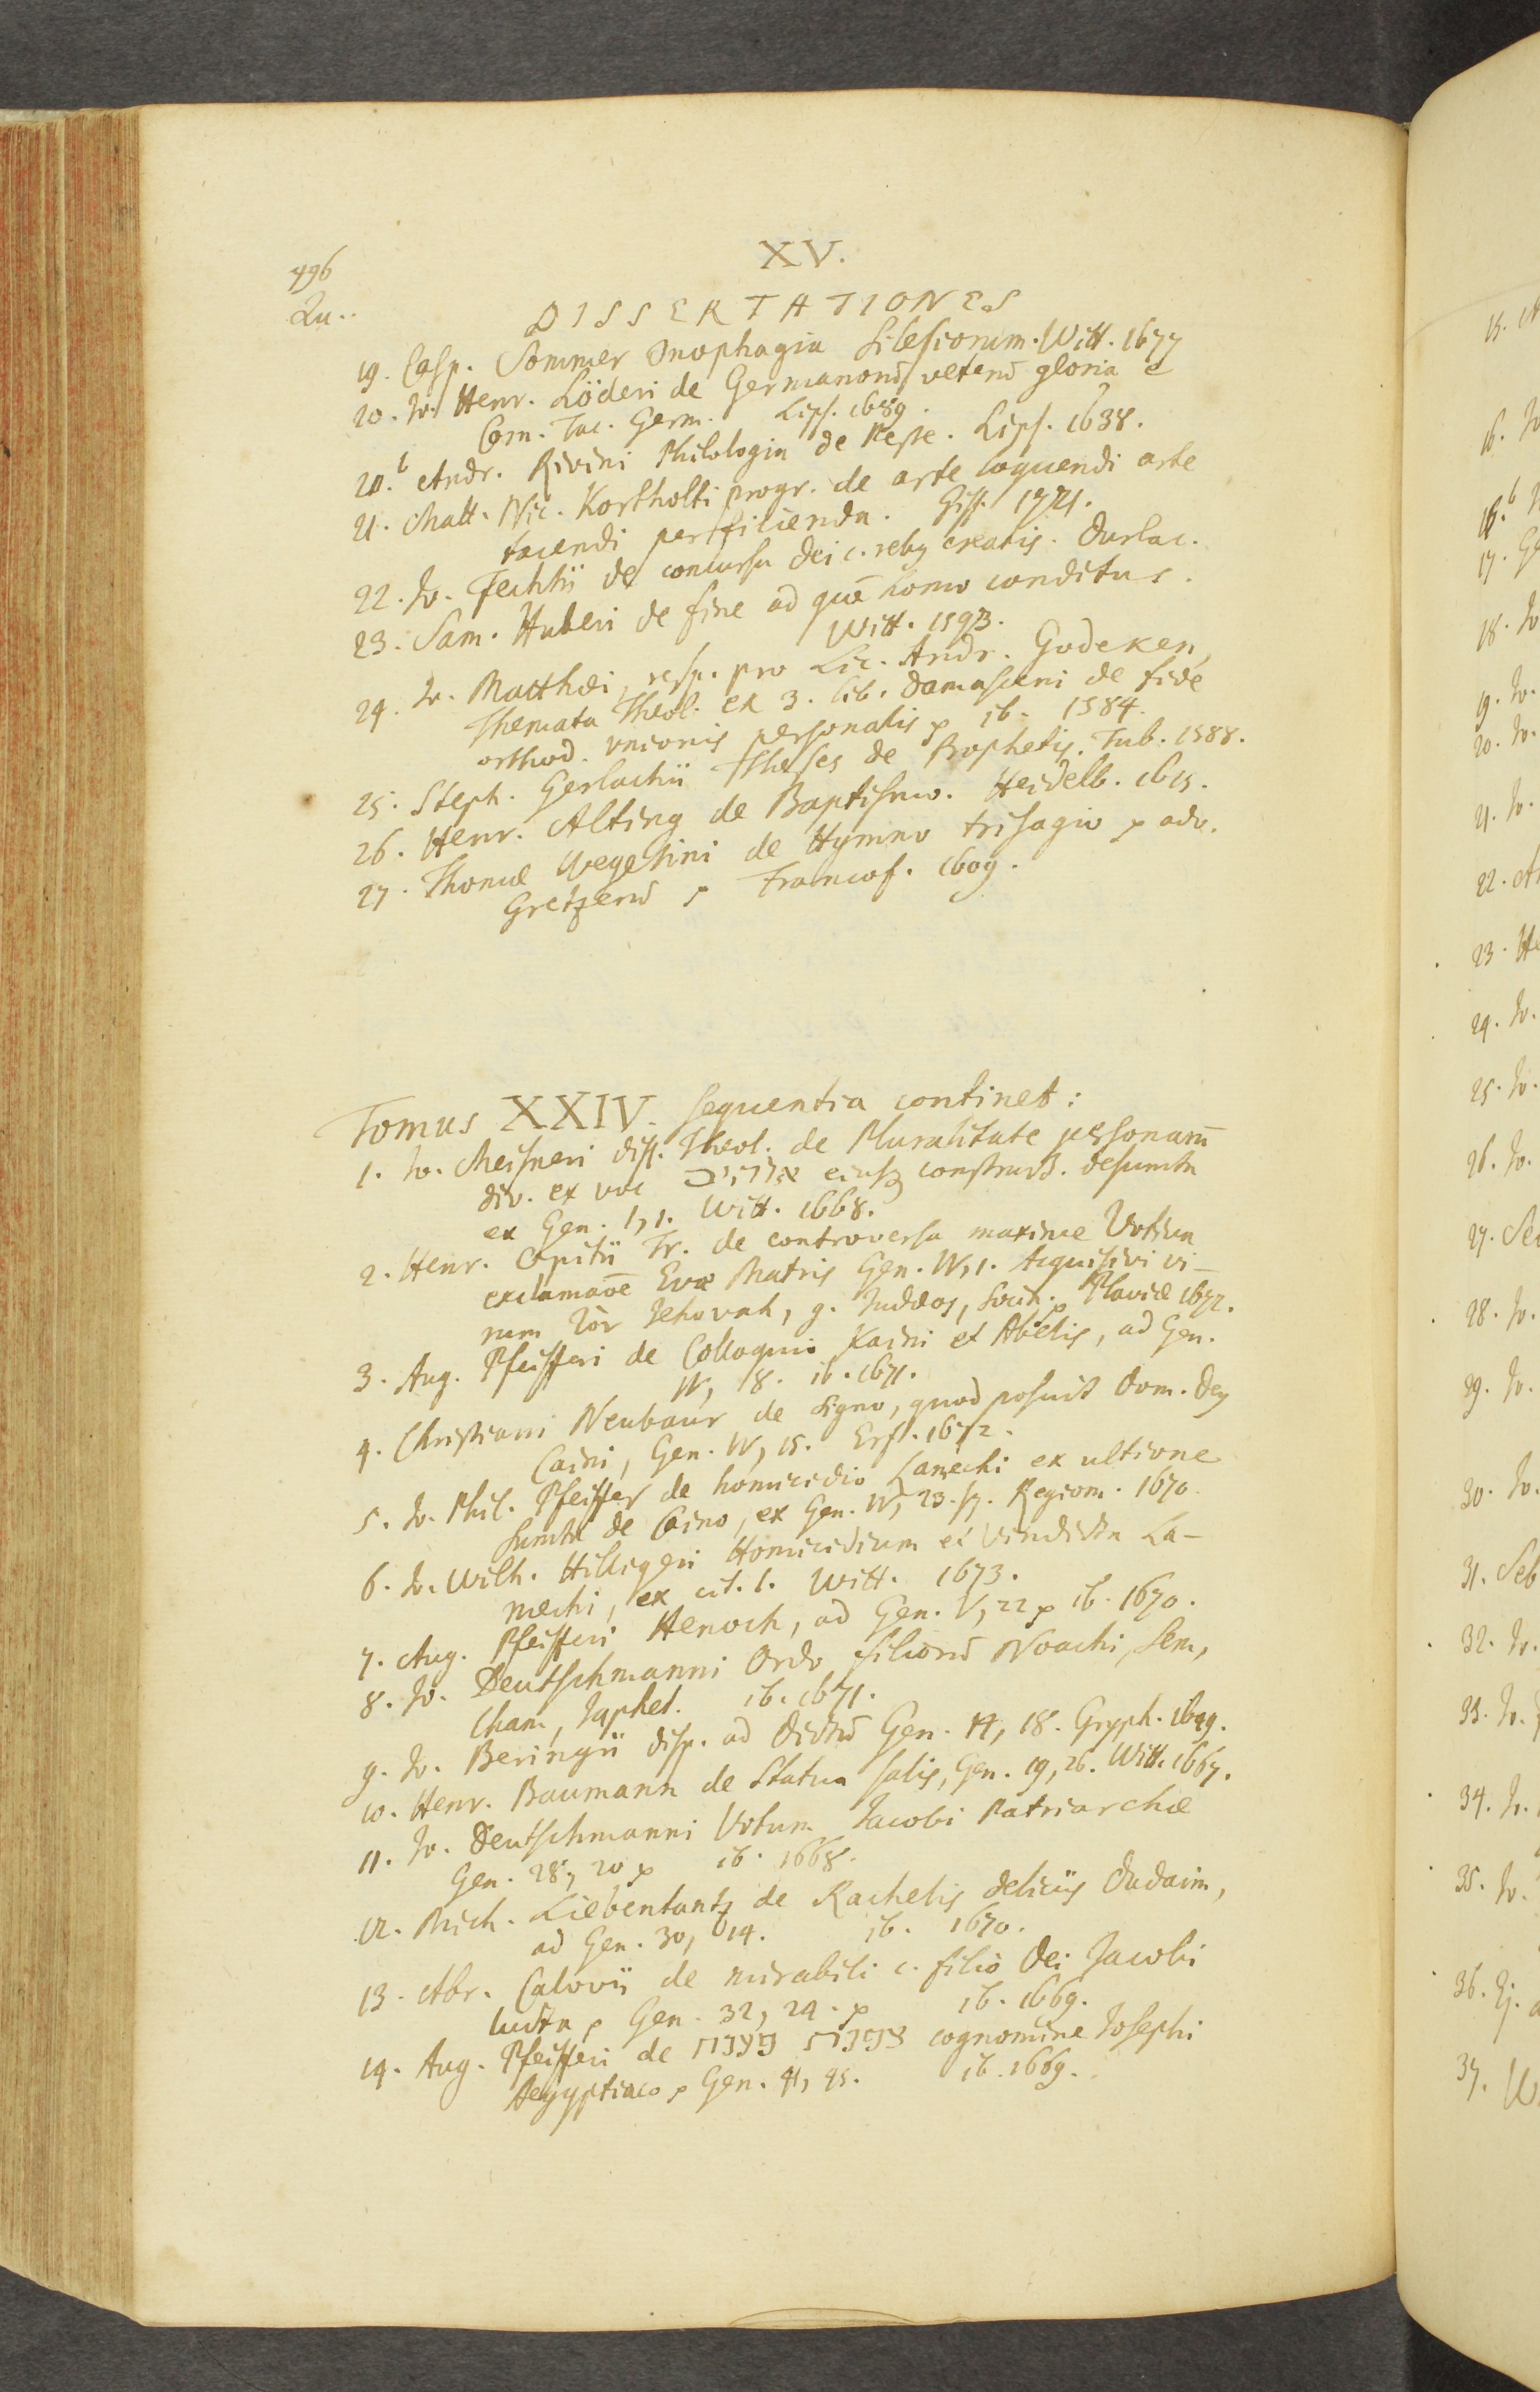 496
XV.
Qu..
DISSERTATIONES
19. Casp. Sommer Onophagia Silesiorum. Witt. 1677
20. Jo. Henr. Löderi de Germanorū veterū gloria è
Corn. Tac. Germ. Lips. 1689.
20.b Andr. Rivini Philologia de Peste. Lips. 1638.
21. Matt. Nic. Kortholti progr. de arte loquendi arte
tacendi perficienda. Giss. 1721.
22. Jo. Fechtii de concursu dei c. rebꝫ creatis. Durlac.
23. Sam. Huberi de fine ad quē homo conditus.
Witt. 1593.
24. Jo. Matthæi, resp. pro Lic. Andr. Godeken,
Themata Theol. ex 3. lib. Damasceni de fide
orthod. unionis personalis ꝓ ib. 1584.
25. Steph. Gerlachii Theses de Prophetis. Tub. 1588.
26. Henr. Alting de Baptismo. Heidelb. 1615.
27. Thomæ Wegelini de Hymno trisagio ꝓ adv.
Gretzerū ꝓ Francof. 1609.
Tomus XXIV. sequentia continet:
1. Jo. Meisneri diss. Theol. de Pluralitate personarū
div. ex voc אלהים eiusqꝫ construct. desumta
ex Gen. 1, 1. Witt. 1668.
2. Henr. Opitii Tr. de controversa maxime Votiva
exclamaōe Evæ Matris Gen. IV, 1. Acquisivi vi-
rum τὸν Jehovah, g. Judæos, Socin. ꝓ Plaviæ 1672.
3. Aug. Pfeifferi de Colloquio Kaini et Abelis, ad Gen.
IV, 18. ib. 1671.
4. Christiani Neubaur de signo, quod posuit Dom. Deꝫ
Caini, Gen. IV, 15. Erf. 1672.
5. Jo. Phil. Pfeiffer de homicidio Lamechi ex ultione
sumta de Caino, ex Gen. IV, 23. sq. Regiom. 1670.
6. Jo. Wilh. Hilligeri Homicidium et Vindicta La-
mechi, ex cit. l. Witt. 1673.
7. Aug. Pfeifferi Henoch, ad Gen. V, 22 ꝓ ib. 1670.
8. Jo. Deutschmanni Ordo filiorū Noachi, Sem,
Cham, Japhet. ib. 1671.
9. Jo. Beringii disp. ad dictū Gen. 11, 18. Gryph. 1699.
10. Henr. Baumann de Statua salis, Gen. 19, 26. Witt. 1667.
11. Jo. Deutschmanni Votum Jacobi Patriarchæ
Gen. 28, 20 ꝓ ib. 1668.
12. Mich. Liebentantz de Rachelis deliciis Dudaim,
ad Gen. 30, 14. ib. 1670.
13. Abr. Calovii de mirabili c. filio Dei Jacobi
lucta ꝓ Gen. 32, 24. ꝓ ib. 1669.
14. Aug. Pfeifferi de צפנת פענח cognomine Josephi
Aegyptiaco ꝓ Gen. 41, 45. ib. 1669.
15.
16. Jo
16.b
17. Ge
18. Jo
19. Jo.
20. Jo.
21. Jo.
22. An
23. He
24. Jo.
25. Jo.
26. Jo.
27. Se
28. Jo.
29. Jo.
30. Jo.
31. Seb
32. Jo.
33. Jo.
34. Jo.
35. Jo.
36. Ej.
37. W